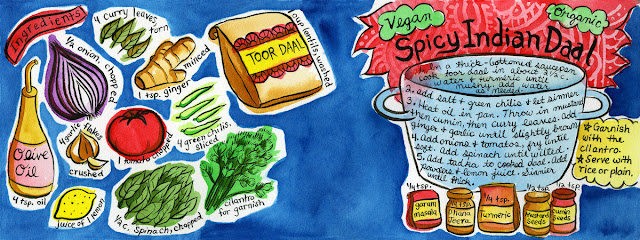 Ingredients
4 curry leaves,
torn
1/2 onion, chopped
minced
1 tsp. ginger
TOOR DAAL
cup lentils, washed
4 garlic flakes
crushed
1 tomato chopped
4 green chilis,
sliced
Olive
Oil
4 tsp. oil
juice of 1 lemon
1/2 c. spinach, chopped
cilantro
for garnish
Vegan
Organic
Spicy Indian Daal
1. In a thick-bottomed saucepan
cook toor daal in about 3 1/2 c.
water + turmeric until
mushy. add water
as needed.
2. add salt + green chilis + let simmer
3. Heat oil in pan. Throw in mustard
then cumin, then curry leaves. Add
ginger & garlic until slightly brown
4. Add onions & tomatoes, fry until
soft. Add spinach until wilted.
5. Add tadka to cooked daal. Add
powders & lemon juice. Simmer
until thick.
★ Garnish
with the
cilantro.
★ Serve with
rice or plain.
1/4 tsp.
garam
masala
1/4 tsp.
Dhana
Jeera
1/4 tsp.
Turmeric
1/2 tsp.
Mustard
Seeds
1/2 tsp.
Cumin
Seeds